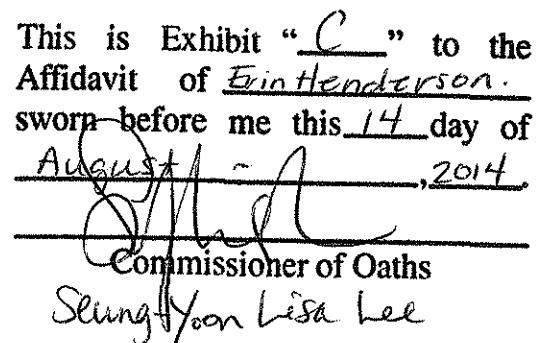 This is Exhibit “ C ” to the
Affidavit of Erin Henderson.
sworn before me this 14 day of
August , 2014.
Commissioner of Oaths
Seung-Yoon Lisa Lee